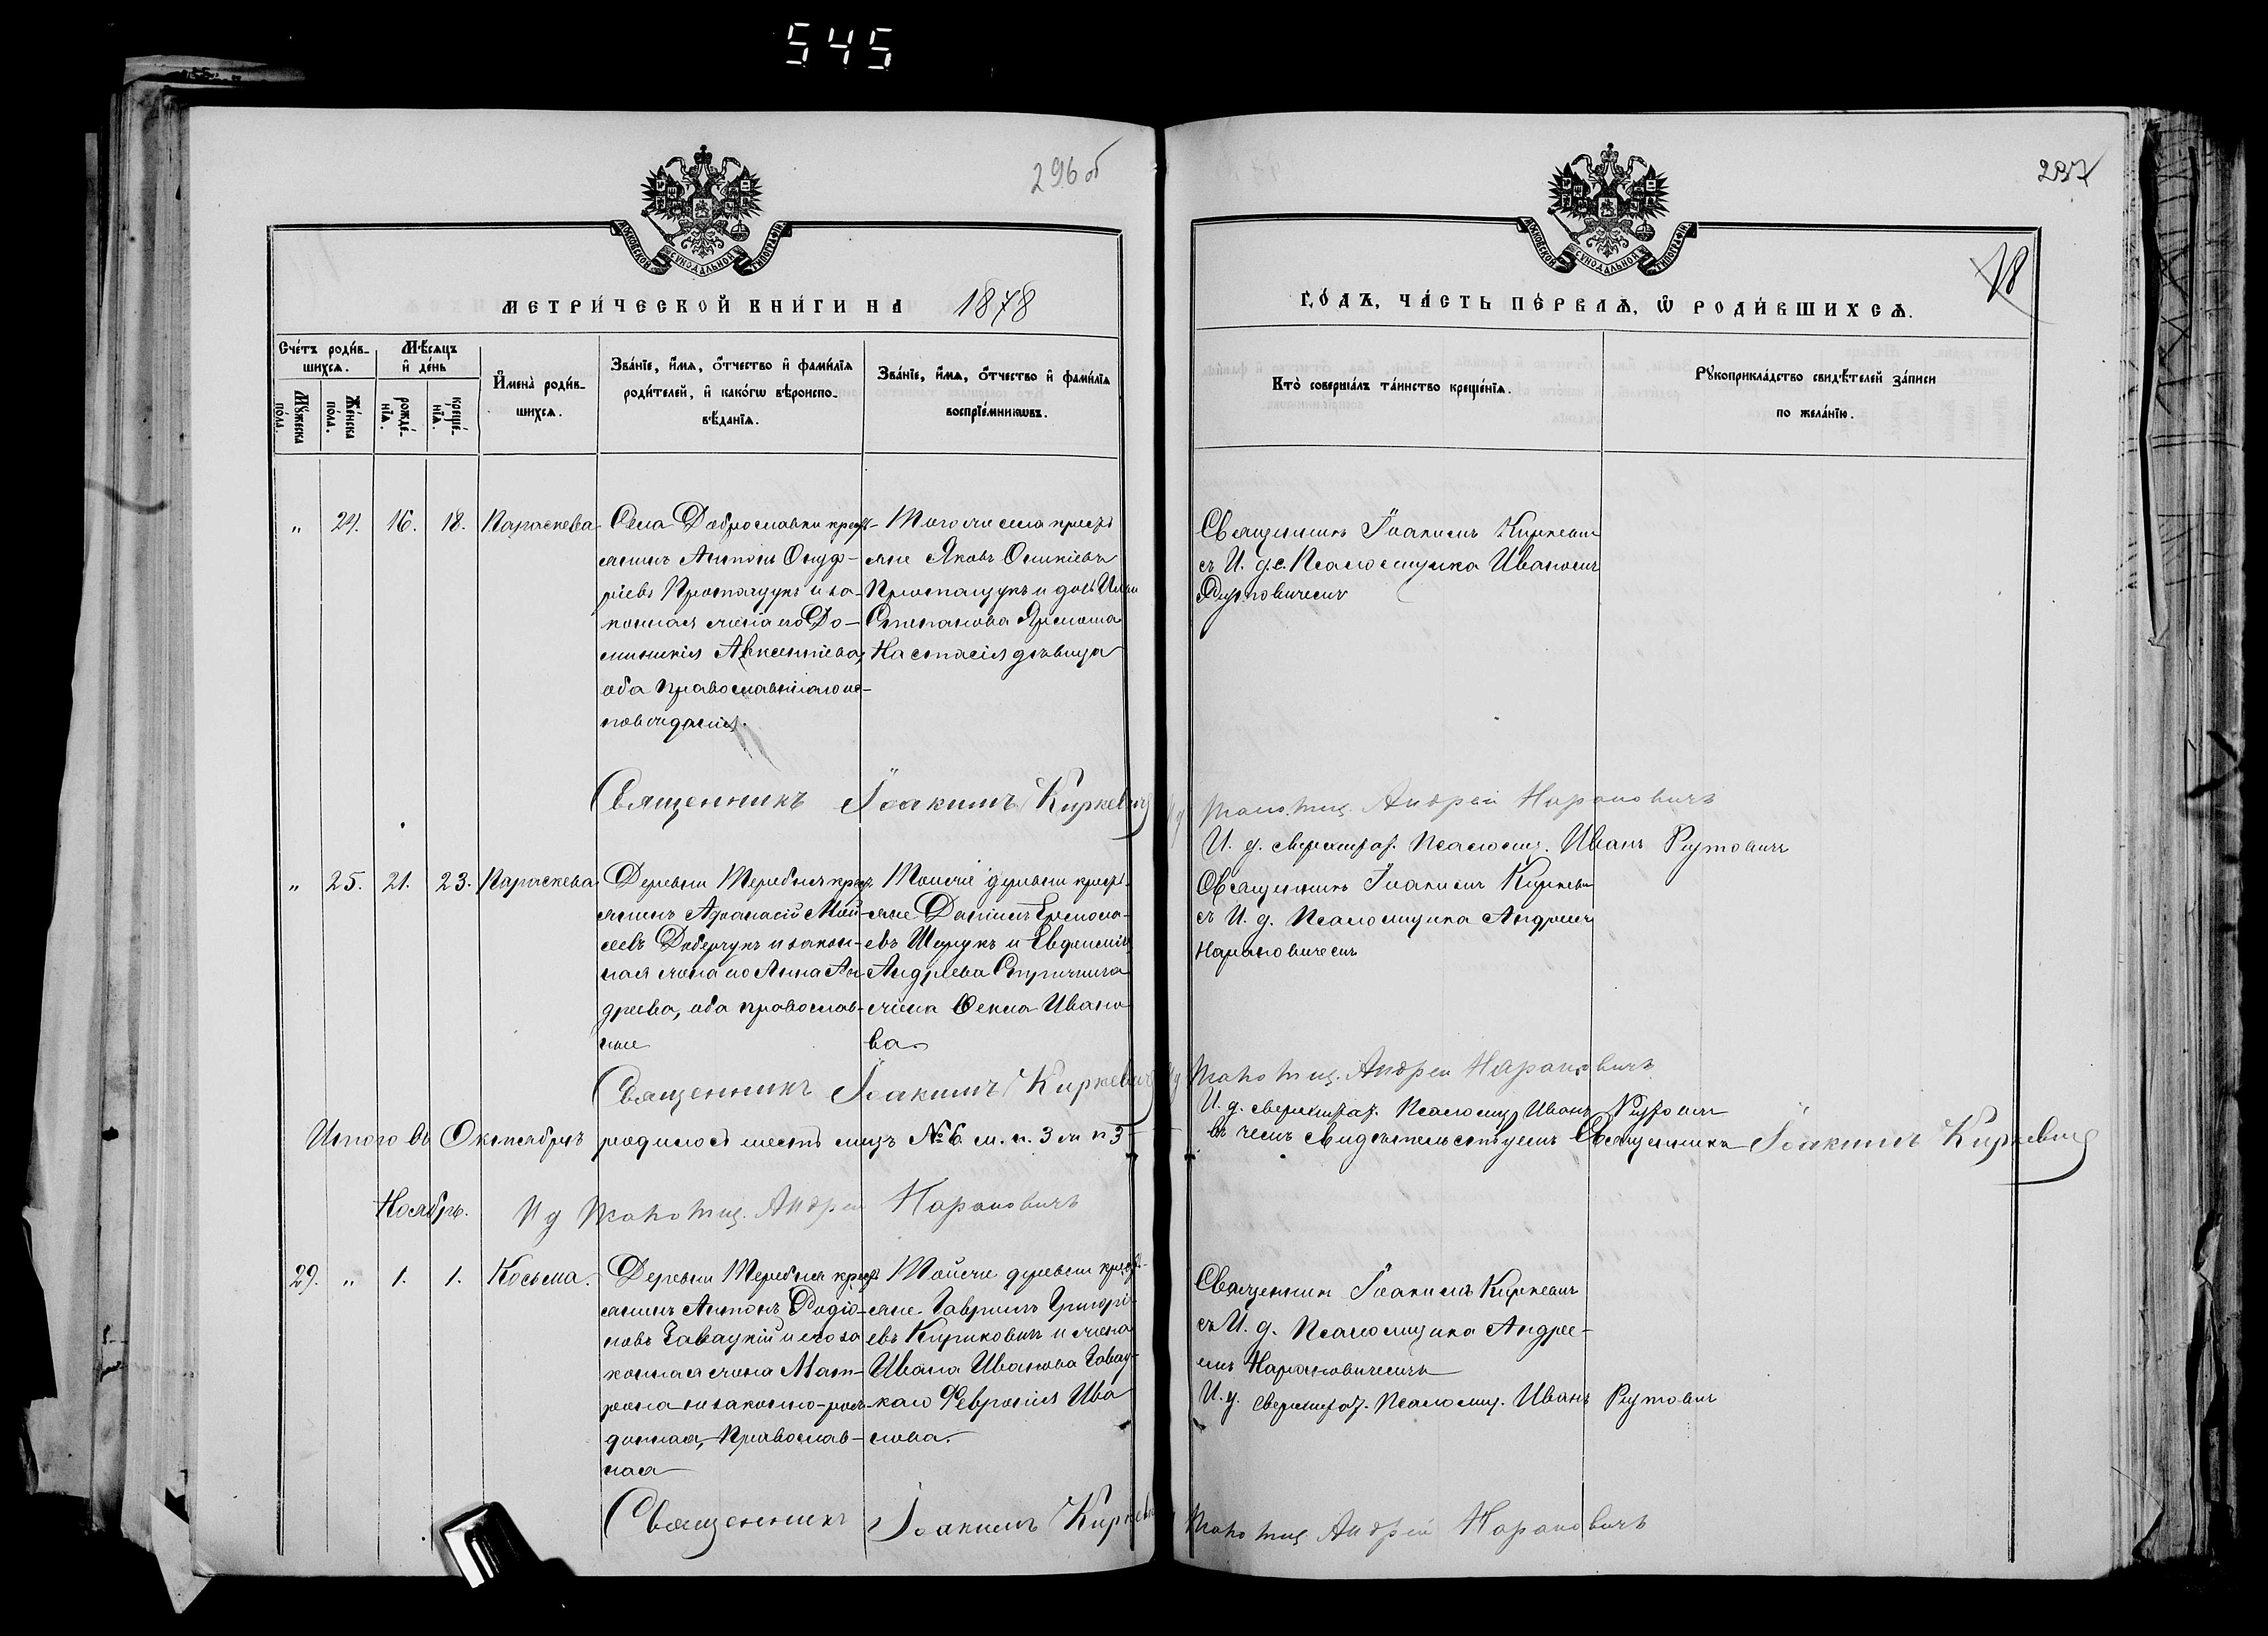 545
296 об
МЕТРИ́ЧЕСКОЙ КНИ́ГИ НА 1878
Сче́тъ роди́в-
шихся.
Мѣ́сяцъ
и҆ де́нь
Мꙋ́жеска
по́ла.
Же́нска
по́ла.
рожде́-
нїѧ.
креще́-
нїѧ.
И҆мена̀ роди́в-
шихся.
Зва́нїе, и҆́мѧ, ѻ҆́тчество и҆ фами́лїѧ
роди́телей, и҆ како́гѡ вѣроиспо-
вѣ́данїѧ.
Зва́нїе, и҆́мѧ, ѻ҆́тчество и҆ фами́лїѧ
воспрїе́мникѡвъ.
„ 24. 16. 18. Параскева
Села Доброславки крест-
янинъ Антонъ Онуф-
ріевъ Простащукъ и за-
конная жена его До-
миникія Авксентіева,
оба православнаго ис-
повѣданія.
Того же села крестъ
яне Яковъ
Простащукъ и дочь
Степанова
Настасія дѣвица
Священникъ Іоакимъ Киркевич
„ 25. 21. 23. Параскева
Деревни Теребня крест
янинъ Афанасій Мой-
сеевъ и закон-
ная жена его Анна Ан-
дреева, оба православ-
ные
Тойже деревни крест-
яне Даніилъ
евъ и Евфимія
Андреева
жена Ѳекла Ивано
ва.
Священникъ Іоакимъ Киркевич
Итого въ Октябрѣ родилось шесть лицъ № 6. м. п. 3 ж п 3
Ноябрь. И д Псаломщ. Андрей Нарановичъ
29. „ 1. 1. Косьма.
Деревни Теребня крест
янинъ Антонъ Родіо-
новъ Гавацкій и его за
конная жена Мат-
рона незаконно-рож-
денная, Православ-
ная
Тойже деревни крест-
яне Гавріилъ Григорі-
евъ Кириковичъ и жена
Ивана Иванова Гавац-
каго Февронія Ива
нова.
Священникъ Іоакимъ Киркевич
297
18
ГО́ДЪ, ЧА́СТЬ ПЕ́РВАѦ, Ѡ҆ РОДИ́ВШИХСѦ.
Кто̀ соверша́лъ та́инство креще́нїѧ.
Рꙋкоприкла́дство свидѣ́телей за́писи
по жела́нїю.
Священникъ Іоакимъ Киркевич
съ И. д. Псаломщика Иваномъ
Рутковичемъ
Псаломщ. Андрей Нарановичъ
И. д. сверхштат. Псаломщ. Иванъ Рутовичъ
Священникъ Іоакимъ Киркевич
съ И. д. Псаломщика Андреемъ
Нарановичемъ
Псаломщ. Андрей Нарановичъ
И. д. сверхштат. Псаломщ. Иванъ Рутовичъ
въ чемъ свидѣтельствуемъ Священникъ Іоакимъ Киркевич
Священникъ Іоакимъ Киркевич
съ И. д. Псаломщика Андре-
емъ Нарановичемъ
И. д. сверхштат. Псаломщ. Иванъ Рутовичъ
Псаломщ. Андрей Нарановичъ